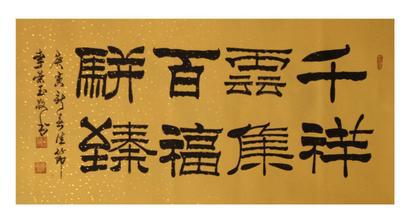 千祥
雲集
百福
駢臻
庚寅新春佳節